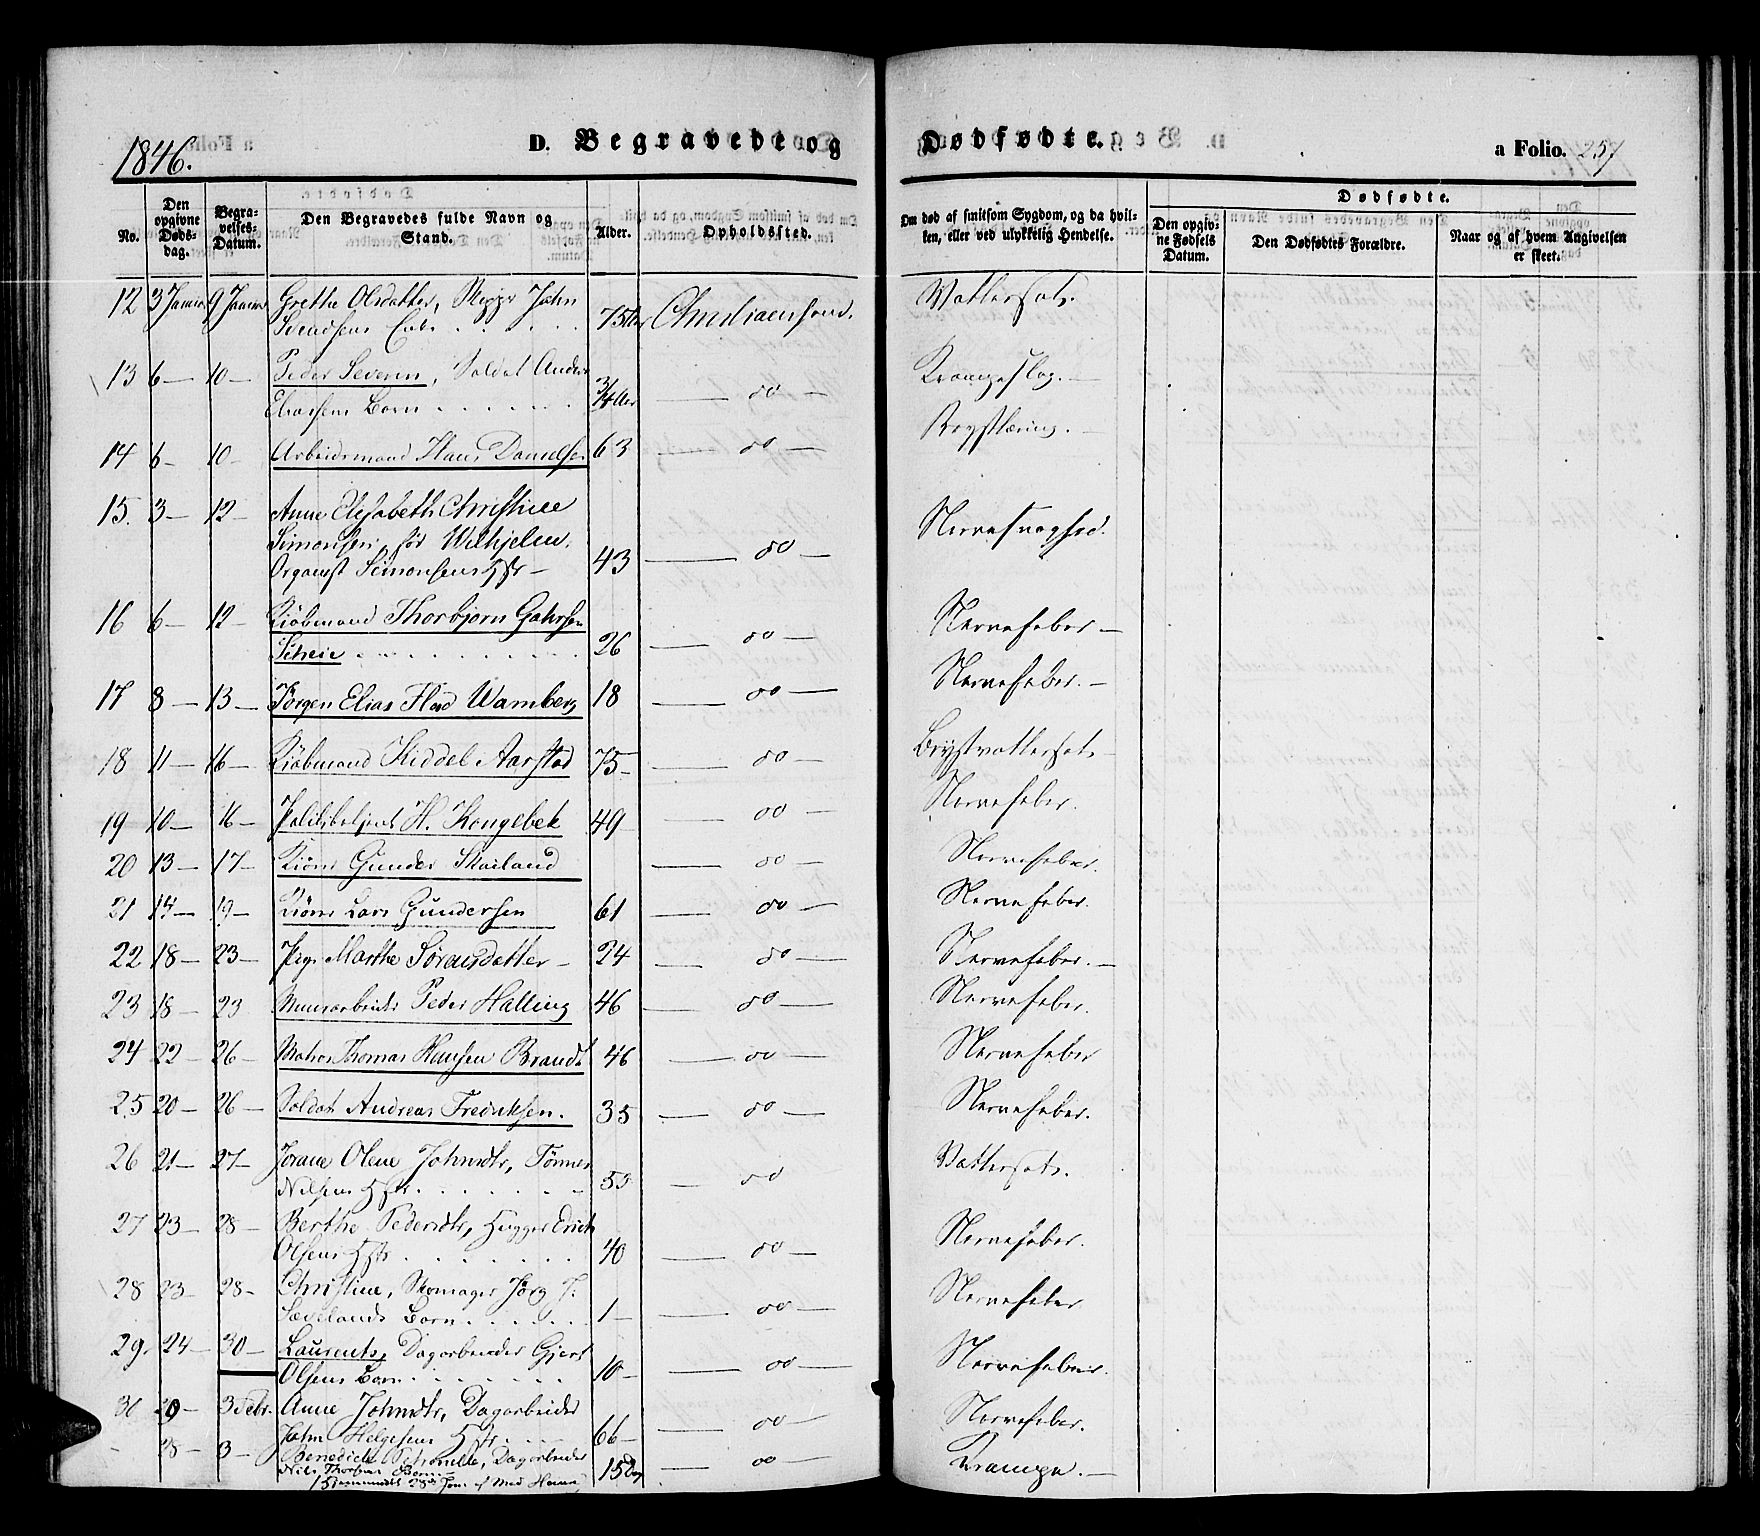 1846.
D. Begravede og Dødfødte.
a Folio. 257
No.
Den opgivne Dødsdag.
Begravelses-Datum.
Den Begravedes fulde Navn og Stand.
Alder.
Opholdssted.
Om død af smitsom Sygdom, og da hvilken, eller ved ulykkelig Hendelse.
Dødfødte.
Den opgivne Fødsels Datum.
Den Dødfødtes Forældre.
Naar og af hvem Angivelsen er skeet.
12 3 Januar 9 Januar Grethe Olsdatter, John
Svendsens Enke 75 Aar Christiansand. Vattersot.
13 6 — 10 — Peder Severin, Soldat Anders
Eliassens Barn 3/4 Aar — do — Krampeslag. —
14 6 — 10 — Arbeidsmand Hans Danielsen 63 — do — Brystlæring. —
15. 3 — 12 — Anne Elisabeth Christine
Simonsen, før Wilhjelm.
Organist Simonsens Hstr — 43 — do — Nervesvaghed.
16 6 — 12 — Kiøbmand Thorbjørn Gahrsen
Scheie 26 — do — Nervefeber —
17 8 — 13 — Jørgen Elias Flod Wamberg 18 — do — Nervefeber. —
18 11 — 16 — Kiøbmand Kiddel Aarstad 75 — — do — Brystvattersot. —
19 10 — 16 — Politibetjent H. Kongebek 49 — do — Nervefeber.
20 13 — 17 — Gunder Skailand — do — Nervefeber.
21 14 — 19 — Lars Gundersen 61 — do — Nervefeber.
22 18 — 23 — Pige Marthe Sørensdatter — 24 — do — Nervefeber. —
23 18 — 23 Muurarbeider Peder Halling 46 — do — Nervefeber.
24 22 — 26 — Matros Thomas Hansen Brandt 46 — do — Nervefeber
25 20 — 26 — Soldat Andreas Fredriksen. 35 — do — Nervefeber.
26 21 — 27 — Jorane Olene Johnsdtr, Tønnes
Nilsens Hstr 55 — do Vattersot.
27 23 — 28 — Berthe Pedersdtr, Hugger Erich
Olsens Hstr 40 — do — Nervefeber.
28 23 — 28 — Christine, Skomager Jørg J.
Sævelands Barn 1 — — do — Nervefeber
29. 24 — 30 — Laurents, Dagarbeider Gjert
Olsens Barn 10 — — do — Nervefeber.
30 29 3 Febr. Anne Johnsdtr, Dagarbeider
John Helgesens Hstr 66 — — do — Nervefeber.
28 — 3 — Benedicte Petronelle, Dagarbeider
Nils Barn 15 Dage — do — Krampe. —